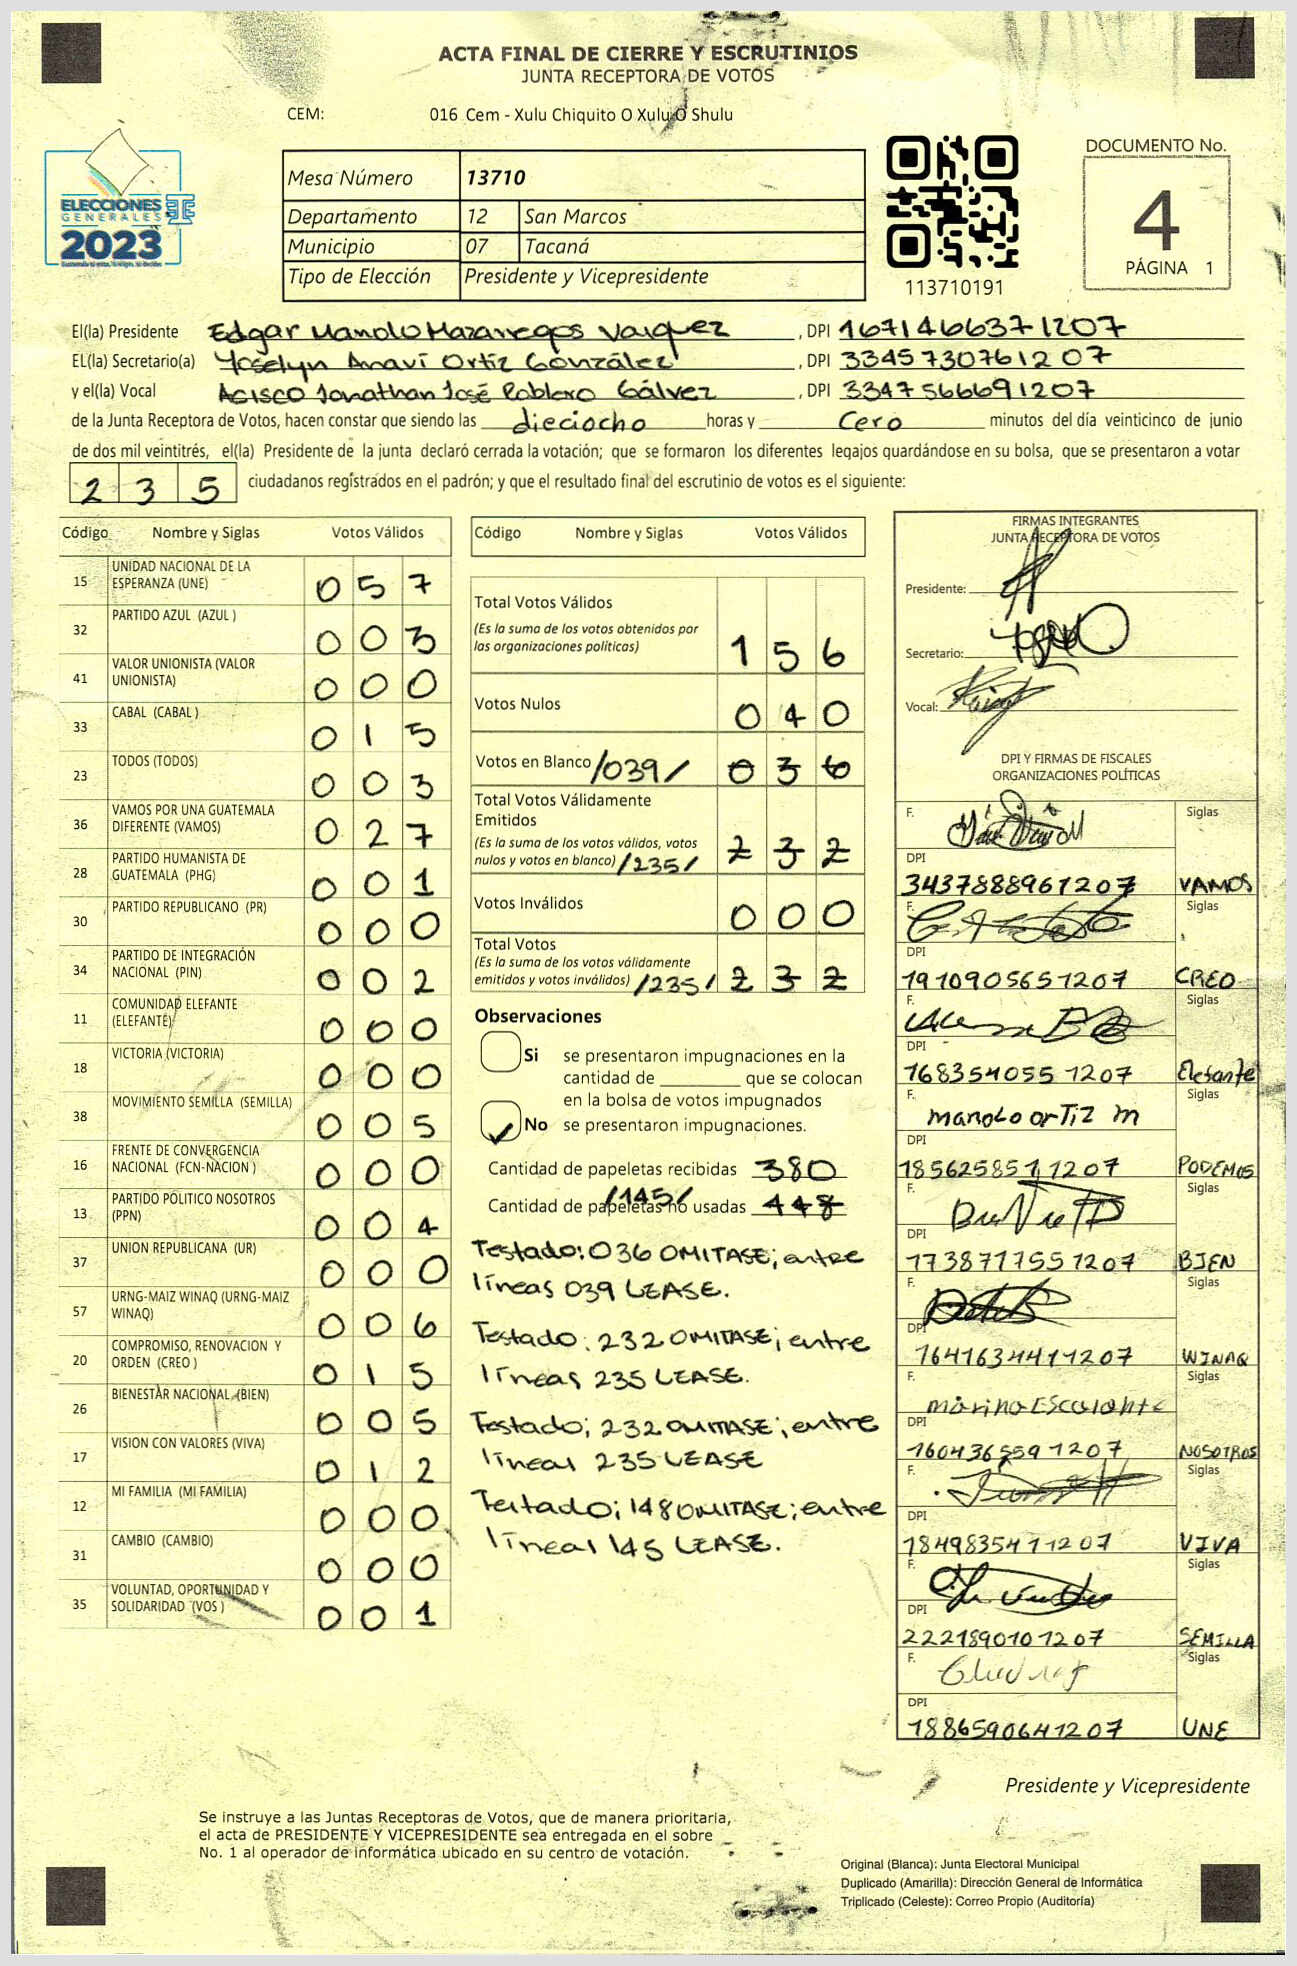 ACTA FINAL DE CIERRE Y ESCRUTINIOS
JUNTA RECEPTORA DE VOTOS
CEM: 016 Cem - Xulu Chiquito O Xulu O Shulu
ELECCIONES
GENERALES
2023
Mesa Número 13710
Departamento 12 San Marcos
Municipio 07 Tacaná
Tipo de Elección Presidente y Vicepresidente
113710191
DOCUMENTO No.
4
PÁGINA 1
El(la) Presidente Edgar Manolo Mazariegos Vasquez, DPI 1671466371207
EL(la) Secretario(a) Yoselyn Anaví Ortiz González, DPI 3345730761207
y el(la) Vocal Acisco Jonathan José Roblero Gálvez, DPI 3347566691207
de la Junta Receptora de Votos, hacen constar que siendo las dieciocho horas y Cero minutos del día veinticinco de junio
de dos mil veintitrés, el(la) Presidente de la junta declaró cerrada la votación; que se formaron los diferentes legajos guardándose en su bolsa, que se presentaron a votar
235 ciudadanos registrados en el padrón; y que el resultado final del escrutinio de votos es el siguiente:
Código Nombre y Siglas Votos Válidos
15 UNIDAD NACIONAL DE LA ESPERANZA (UNE) 057
32 PARTIDO AZUL (AZUL ) 003
41 VALOR UNIONISTA (VALOR UNIONISTA) 000
33 CABAL (CABAL ) 015
23 TODOS (TODOS) 003
36 VAMOS POR UNA GUATEMALA DIFERENTE (VAMOS) 027
28 PARTIDO HUMANISTA DE GUATEMALA (PHG) 001
30 PARTIDO REPUBLICANO (PR) 000
34 PARTIDO DE INTEGRACIÓN NACIONAL (PIN) 002
11 COMUNIDAD ELEFANTE (ELEFANTE) 000
18 VICTORIA (VICTORIA) 000
38 MOVIMIENTO SEMILLA (SEMILLA) 005
16 FRENTE DE CONVERGENCIA NACIONAL (FCN-NACION ) 000
13 PARTIDO POLITICO NOSOTROS (PPN) 004
37 UNION REPUBLICANA (UR) 000
57 URNG-MAIZ WINAQ (URNG-MAIZ WINAQ) 006
20 COMPROMISO, RENOVACION Y ORDEN (CREO ) 015
26 BIENESTAR NACIONAL (BIEN) 005
17 VISION CON VALORES (VIVA) 012
12 MI FAMILIA (MI FAMILIA) 000
31 CAMBIO (CAMBIO) 000
35 VOLUNTAD, OPORTUNIDAD Y SOLIDARIDAD (VOS ) 001
Código Nombre y Siglas Votos Válidos
Total Votos Válidos
(Es la suma de los votos obtenidos por
las organizaciones políticas) 156
Votos Nulos 040
Votos en Blanco /039/ 036
Total Votos Válidamente
Emitidos
(Es la suma de los votos válidos, votos
nulos y votos en blanco) /235/ 232
Votos Inválidos 000
Total Votos
(Es la suma de los votos válidamente
emitidos y votos inválidos) /235/ 232
Observaciones
Si se presentaron impugnaciones en la
cantidad de ________ que se colocan
en la bolsa de votos impugnados
No se presentaron impugnaciones.
Cantidad de papeletas recibidas 380
/145/
Cantidad de papeletas no usadas 448
Testado: 036 OMITASE; entre
líneas 039 LEASE.
Testado: 232 OMITASE; entre
líneas 235 LEASE.
Testado; 232 OMITASE; entre
líneal 235 LEASE
Testado; 148 OMITASE; entre
líneal 145 LEASE.
FIRMAS INTEGRANTES
JUNTA RECEPTORA DE VOTOS
Presidente:
Secretario:
Vocal:
DPI Y FIRMAS DE FISCALES
ORGANIZACIONES POLÍTICAS
F. Siglas
DPI
3437888961207 VAMOS
F. Siglas
DPI
1910905651207 CREO
F. Siglas
DPI
1683540551207 Elefante
F. manolo ortiz m Siglas
DPI
1856258511207 PODEMOS
F. Siglas
DPI
1738717551207 BIEN
F. Siglas
DPI
1641634411207 WINAQ
F. Marino Escalante Siglas
DPI
1604365591207 NOSOTROS
F. Siglas
DPI
1849835411207 VIVA
F. Siglas
DPI
2221890101207 SEMILLA
F. Siglas
DPI
1886590641207 UNE
Presidente y Vicepresidente
Se instruye a las Juntas Receptoras de Votos, que de manera prioritaria,
el acta de PRESIDENTE Y VICEPRESIDENTE sea entregada en el sobre
No. 1 al operador de informática ubicado en su centro de votación.
Original (Blanca): Junta Electoral Municipal
Duplicado (Amarilla): Dirección General de Informática
Triplicado (Celeste): Correo Propio (Auditoría)